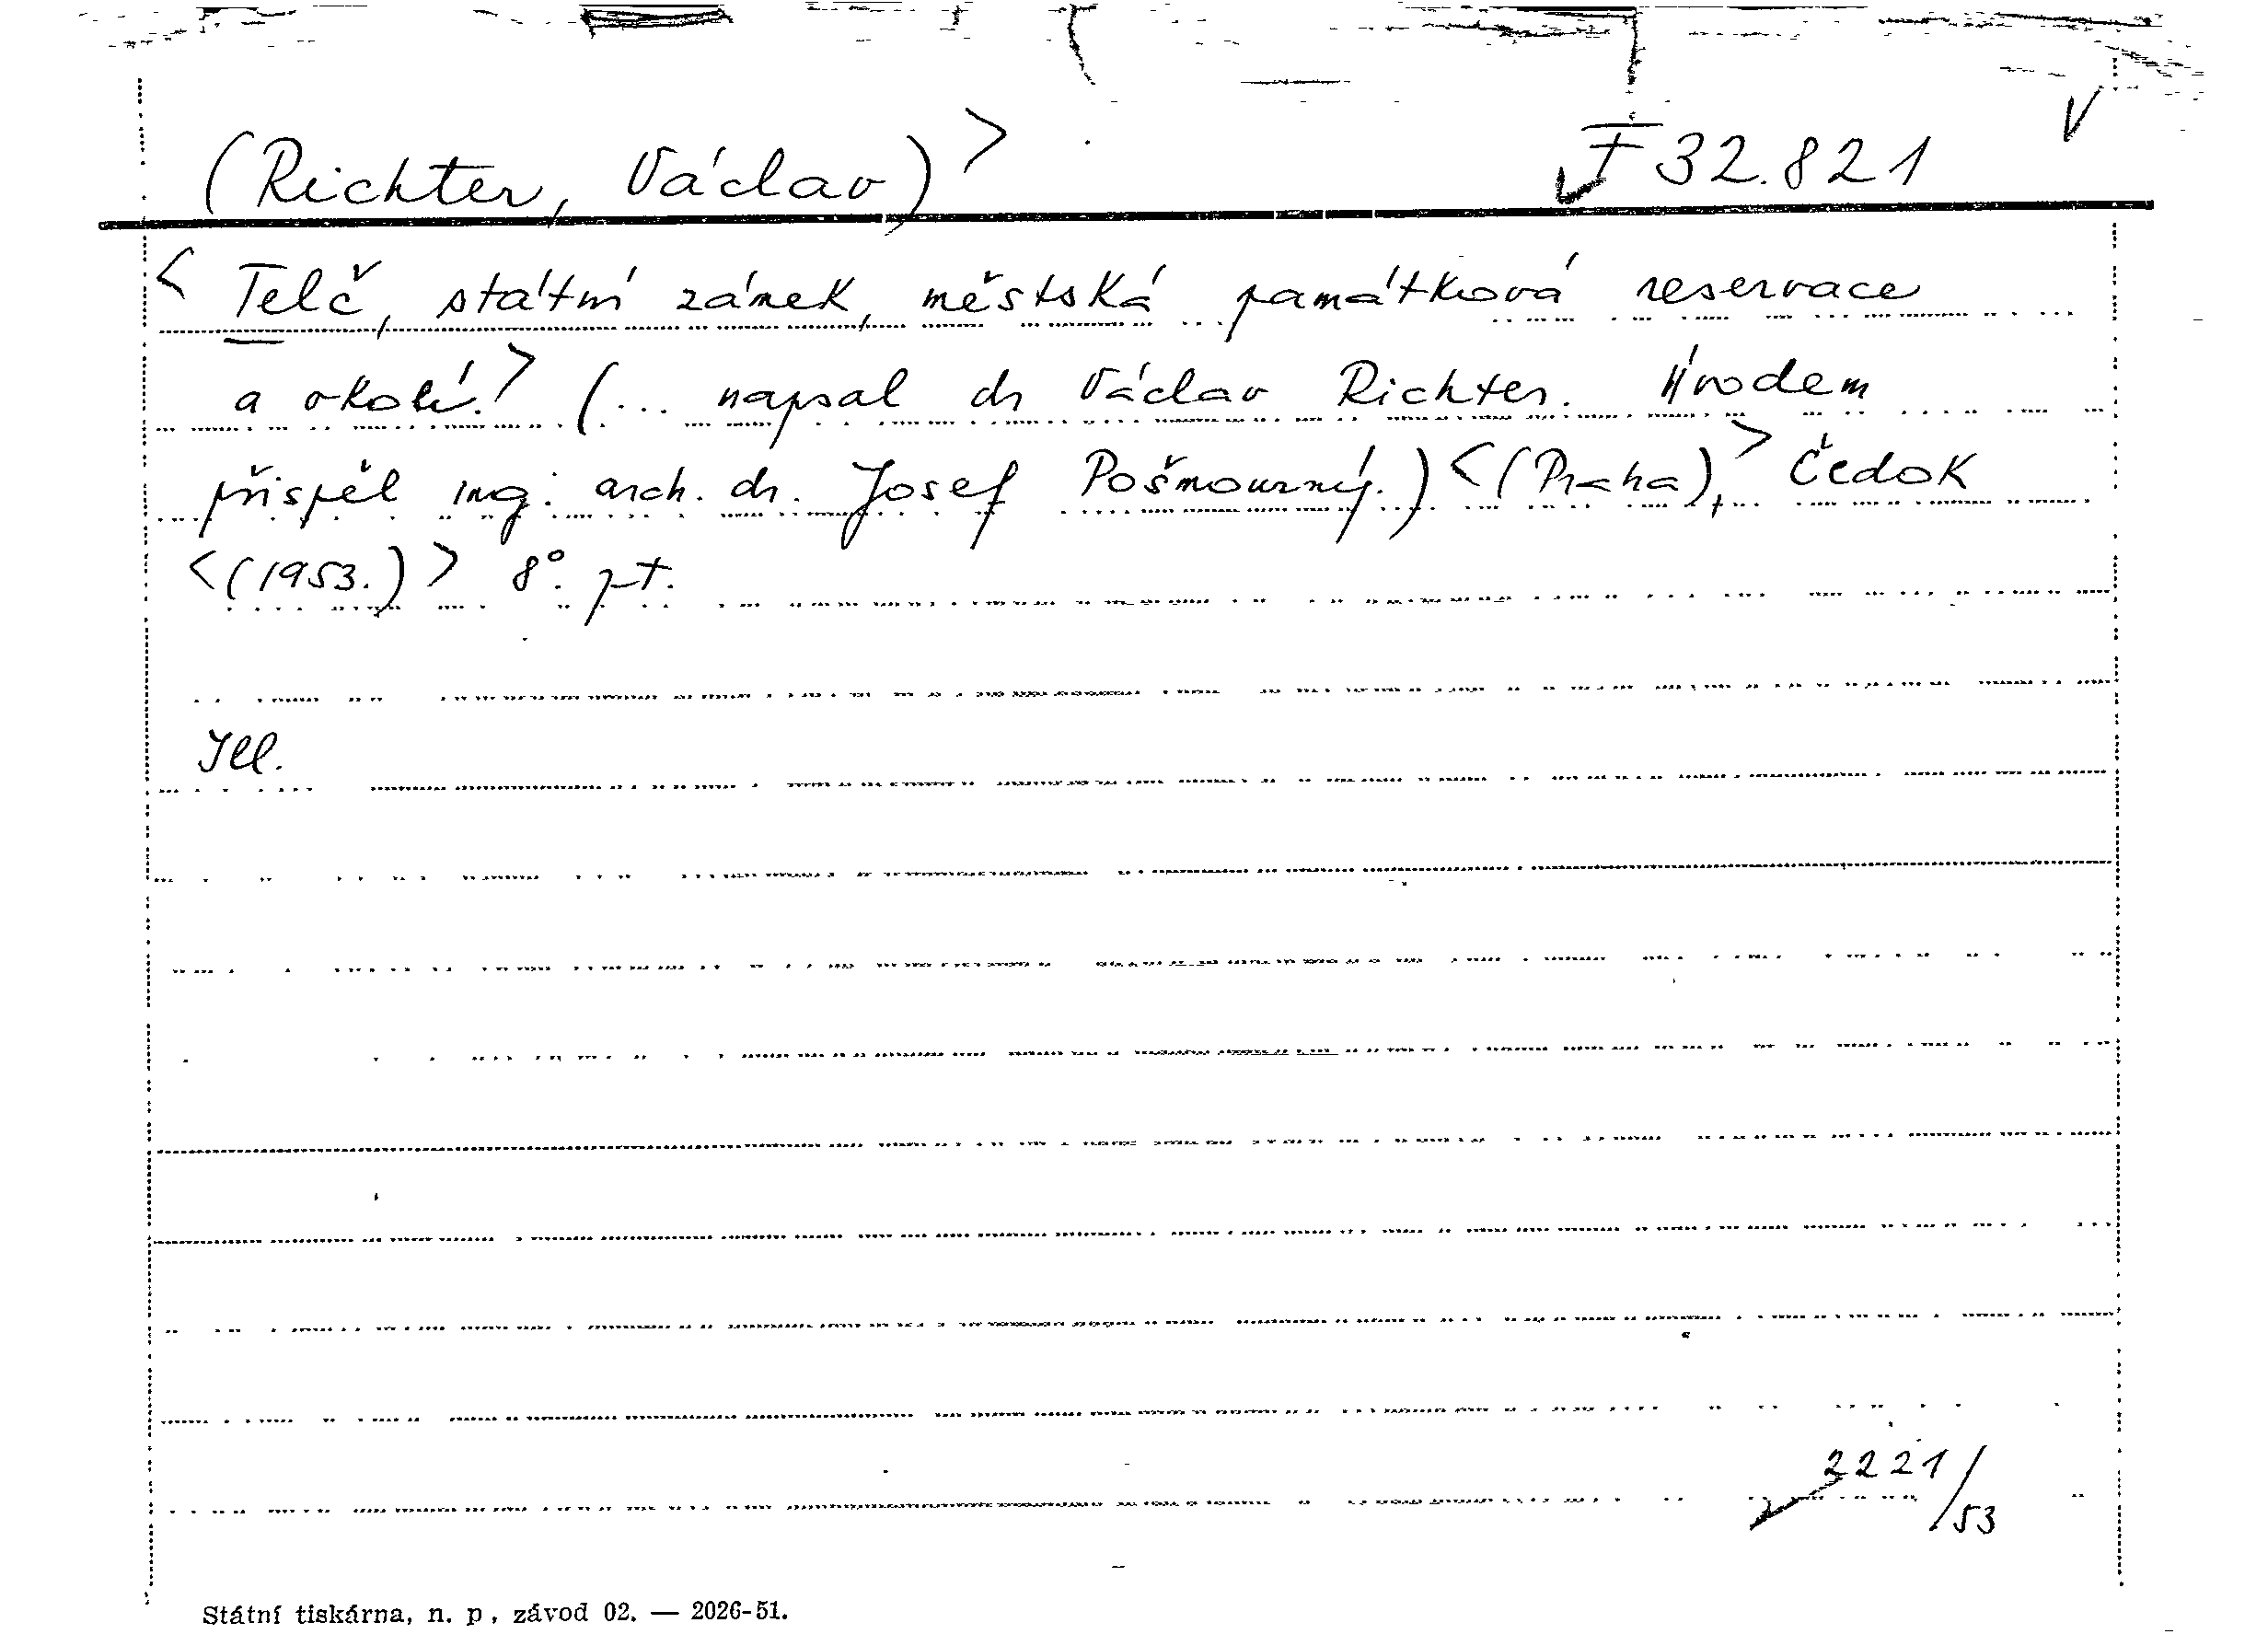 (Richter, Václav)> I 32.821
<Telč, státní zámek, městská památková reservace
a okolí.> (... napsal dr Václav Richter. Úvodem
přispěl ing. arch. dr. Josef Pošmourný.) <(Praha),> Čedok
<(1953.)> 8°. pt.
Ill.
2221/53
Státní tiskárna, n. p., závod 02. — 2026-51.